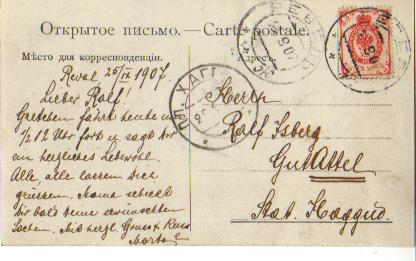 Открытое письмо. — Carte postale.
Мѣсто для корреспонденціи.
Адресъ.
РЕВЕЛЬ
Reval 25/IX 1907.
Lieber Ralf!
Gretchen fährt heute um
1/2 12 Uhr fort u. sagt Dir
ein herzliches Lebewohl.
Alle, alle lassen Dich
grüssen. Mama schickt
Dir bald Deine erwünschten
Sachen. Mit herzl. Gruss u. Kuss
Herrn
Ralf Isberg
Gut Attel
Stat. Haggud.